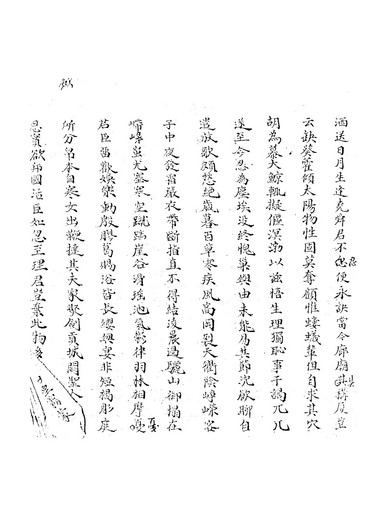 洒送日月生逢堯舜君不忍便永訣當今廊廟具構厦豈
云缺葵藿傾太陽物性固莫奪顧惟螻蟻輩但自求其穴
胡為慕大鯨輒擬偃溟渤以茲悟生理獨恥事干謁兀兀
遂至今忍為塵埃没終愧巢與由未能易其節沈飲聊自
遣放歌頗愁絶歲暮百草零疾風高岡裂天衢陰崢嶸客
子中夜發霜嚴衣帶斷指直不得結凌晨過驪山御榻在
嵽嵲蚩尤塞寒空蹴踏崖谷滑瑤池氣鬱律羽林相摩戛
君臣留歡娛樂動殷膠葛賜浴皆長纓與宴非短褐彤庭
所分帛本自寒女出鞭撻其夫家聚斂貢城闕聖人
恩實欲邦國活臣如忽至理君豈棄此物多